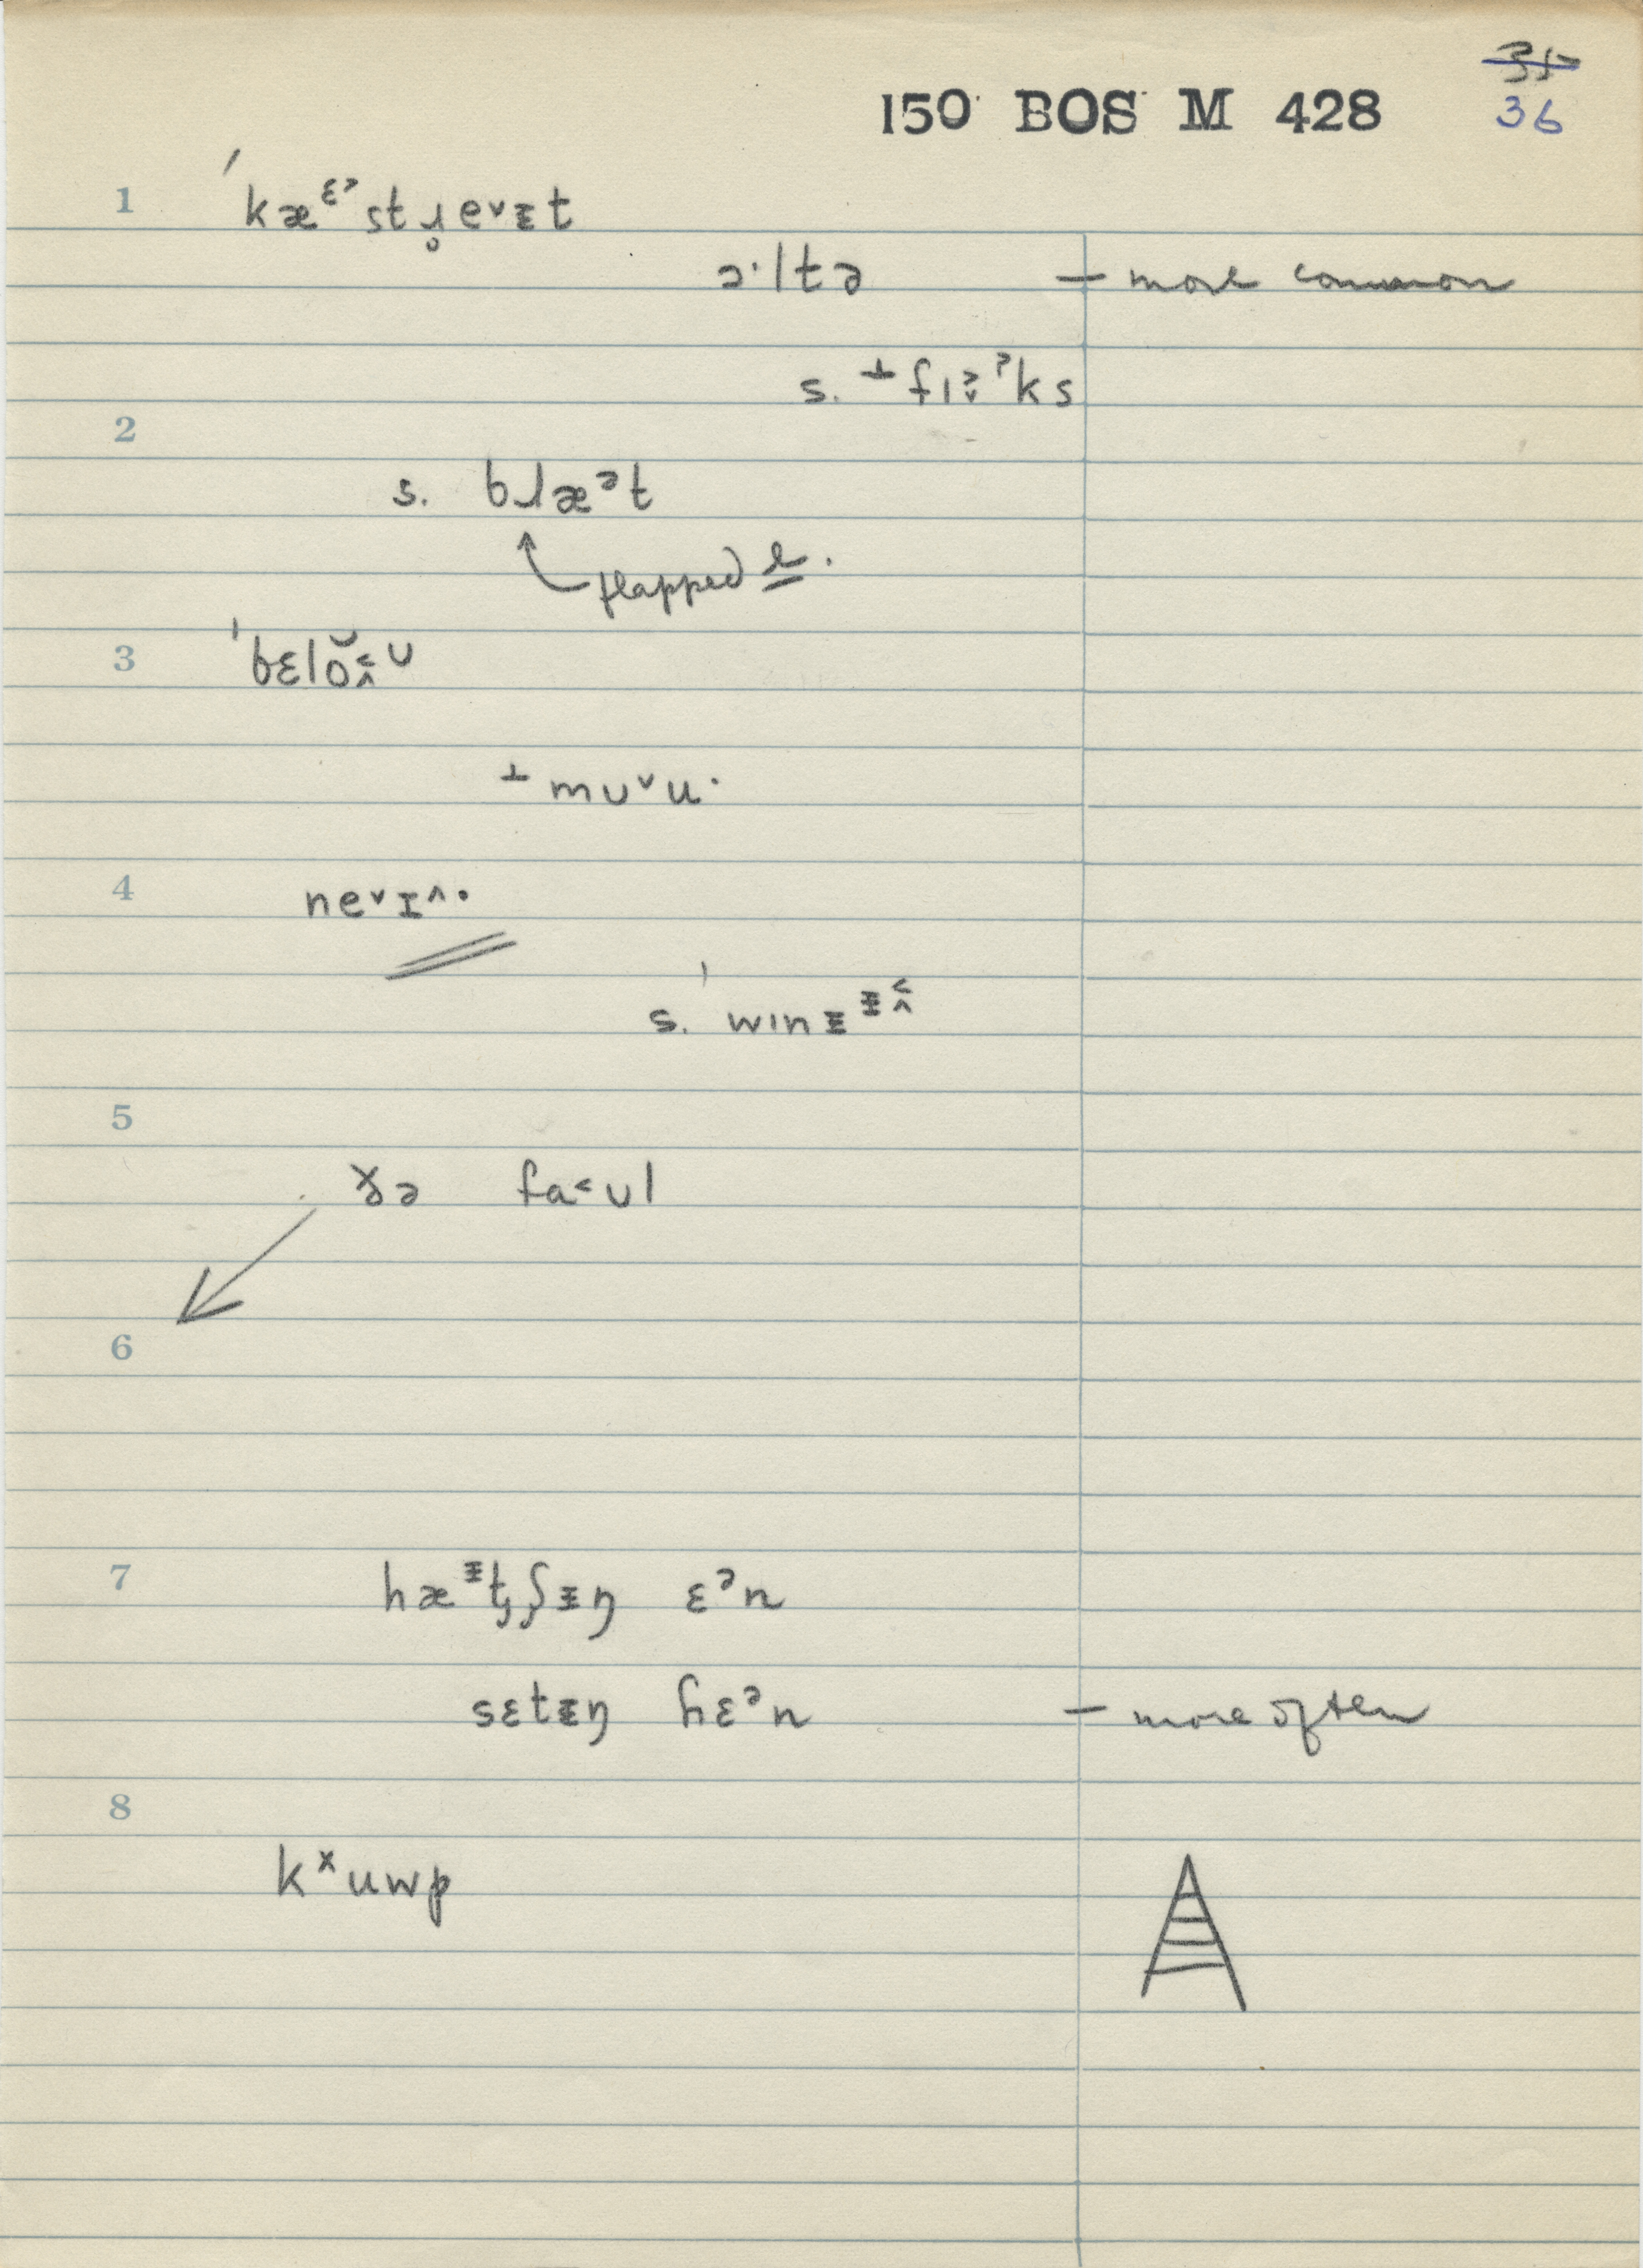 35
150 BOS M 428 36
1 ˈkæᵋˀstɹ̥eᵛᵻt
ɔ·ltə — more common
s. ⊥ flɜ̬ˀks
2
s. bɹæᵊt
flapped r.
3 ˈbɛlŏ̭˂ʊ
⊥ mʊᵛu·
4 neᵛɪ^·
s. ˈwɪnᵻᵻ̂˂
5
ɣə fa˂ʊl
6
7 hæᵻtʃᵻŋ ɛᵊn
sɛtᵻŋ ɦɛᵊn — more often
8
kˣuwp